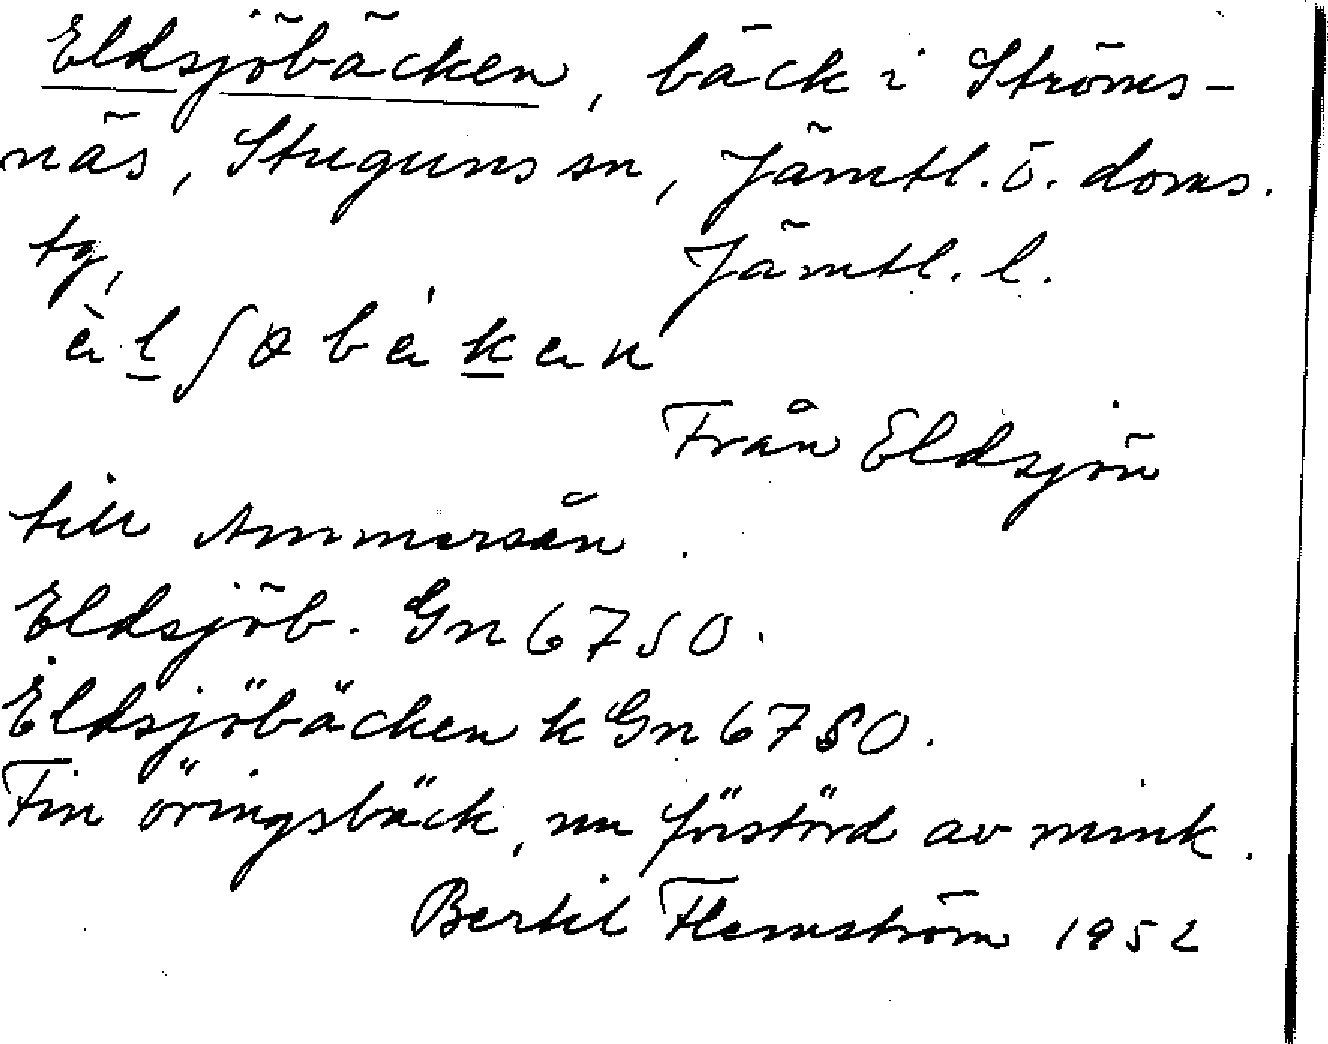 Eldsjöbäcken, bäck i Ströms-
näs, Stuguns sn, Jämtl. ö. doms.
tg, Jämtl. l.
Från Eldsjön
till Ammersån.
Eldsjöb. Gn 6750.
Eldsjöbäcken k Gn 6750.
Fin öringsbäck, nu förstörd av mink.
Bertil Flemström 1952